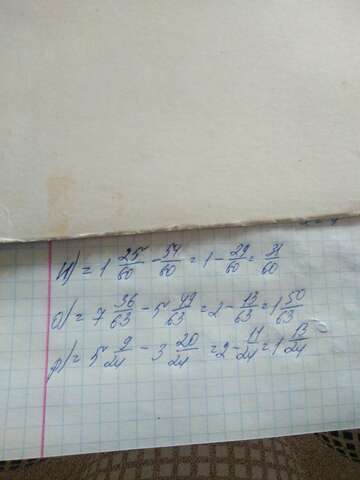 н) = 1 25/60 - 54/60 = 1 - 29/60 = 31/60
о) = 7 36/63 - 5 49/63 = 2 - 13/63 = 1 50/63
р) = 5 9/24 - 3 20/24 = 2 - 11/24 = 1 13/24